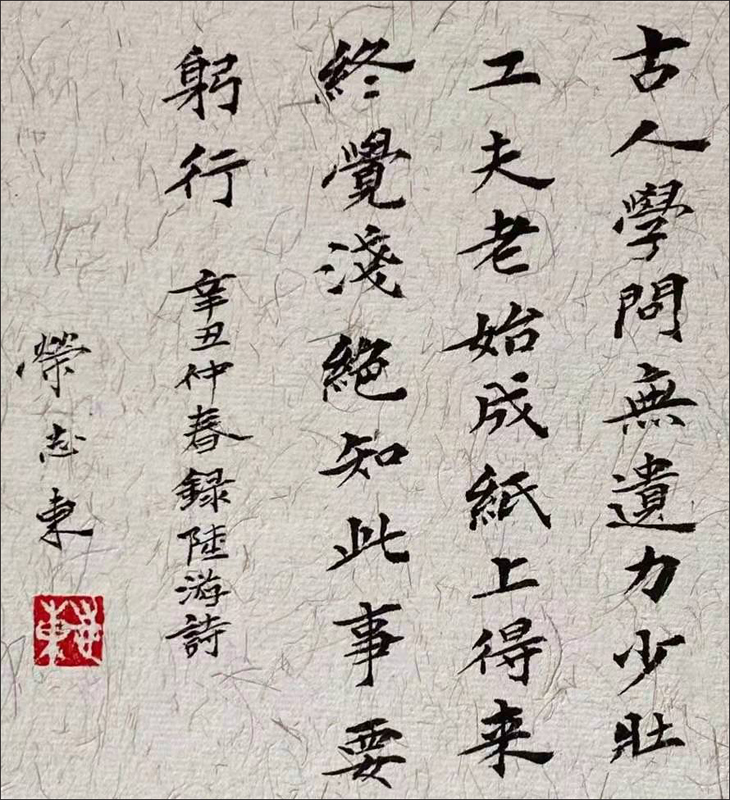 古人學問無遺力少壯
工夫老始成紙上得来
終覺淺絕知此事要
躬行
辛丑仲春録陸游詩
榮志東